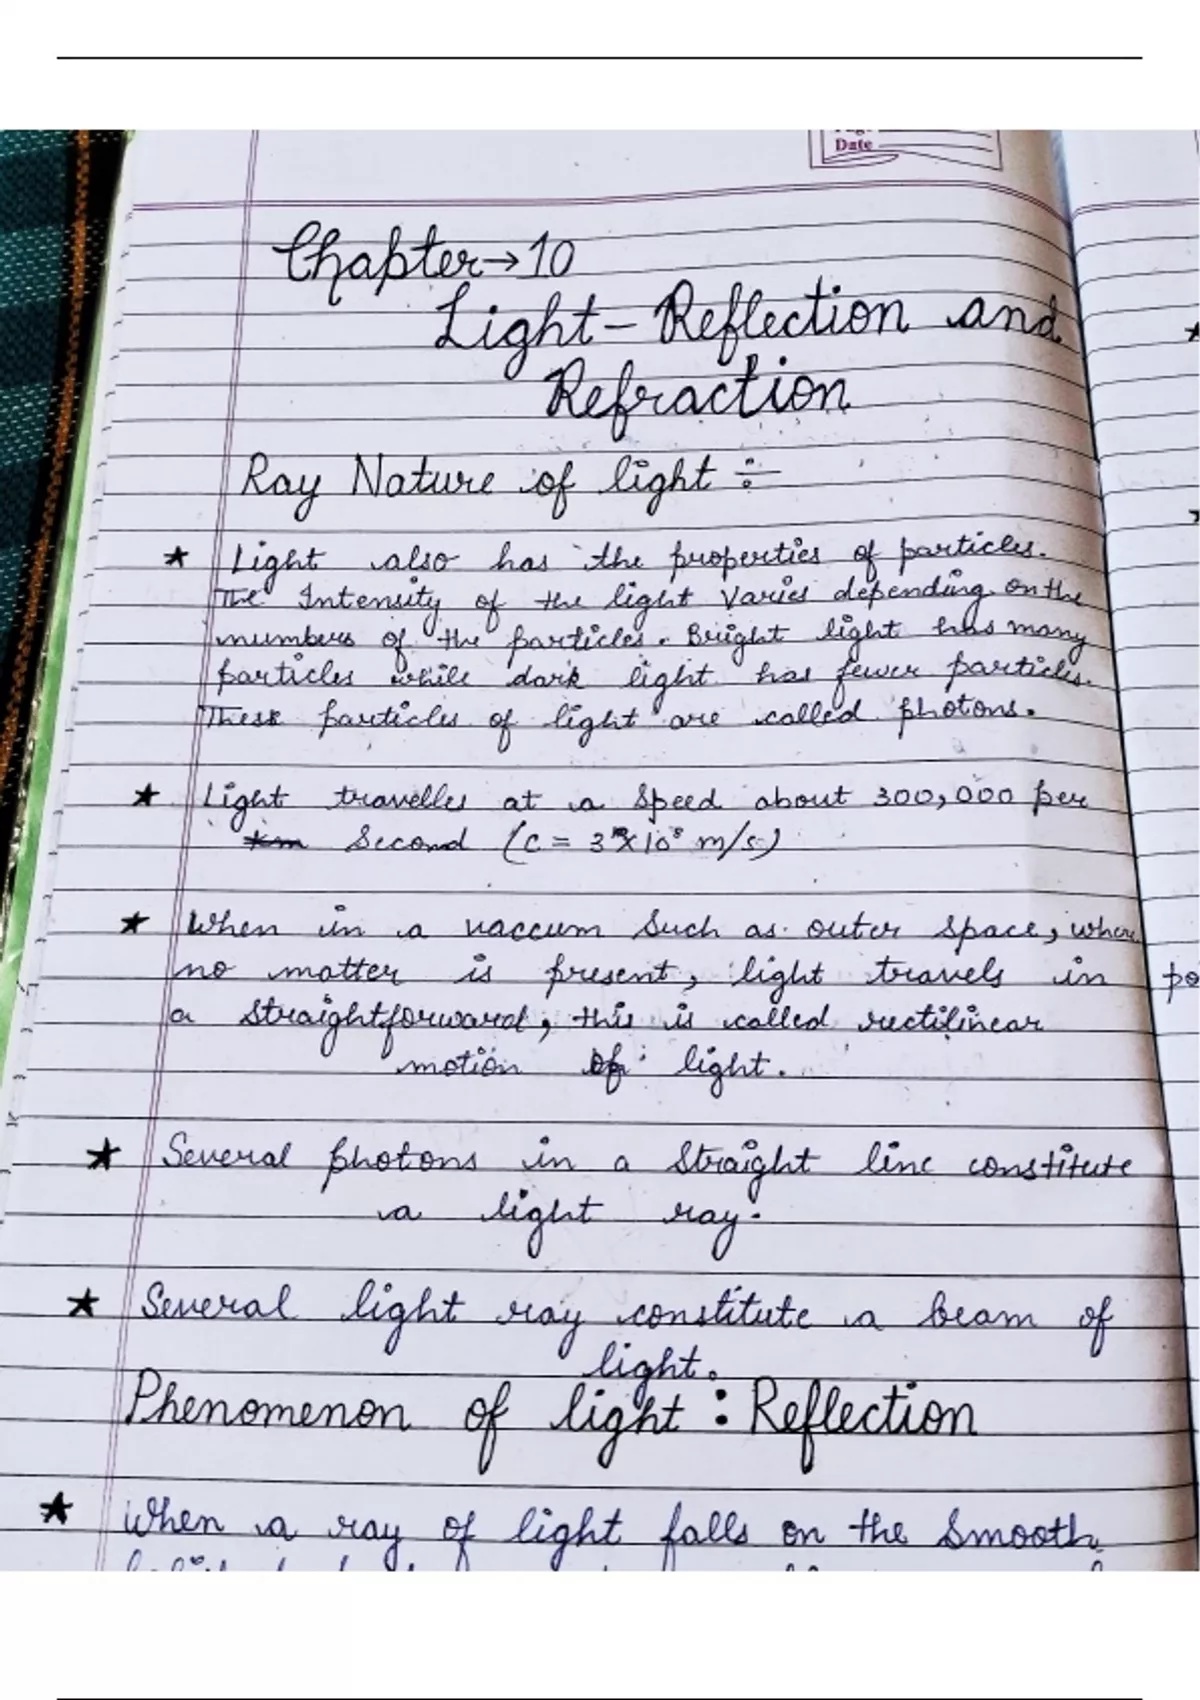 Date
Chapter→10
Light-Reflection and
Refraction
Ray Nature of light ÷
★ Light also has the properties of particles.
The Intensity of the light varies depending on the
numbers of the particles. Bright light has many
particles while dark light has fewer particles.
These particles of light are called photons.
★ Light travelles at a speed about 300,000 per
Second (c = 3×10⁸ m/s)
★ When in a vaccum such as outer space, where
no matter is present, light travels in
a straightforward, this is called rectilinear
motion of light.
★ Several photons in a straight line constitute
a light ray.
★ Several light ray constitute a beam of
light.
Phenomenon of light : Reflection
★ When a ray of light falls on the smooth